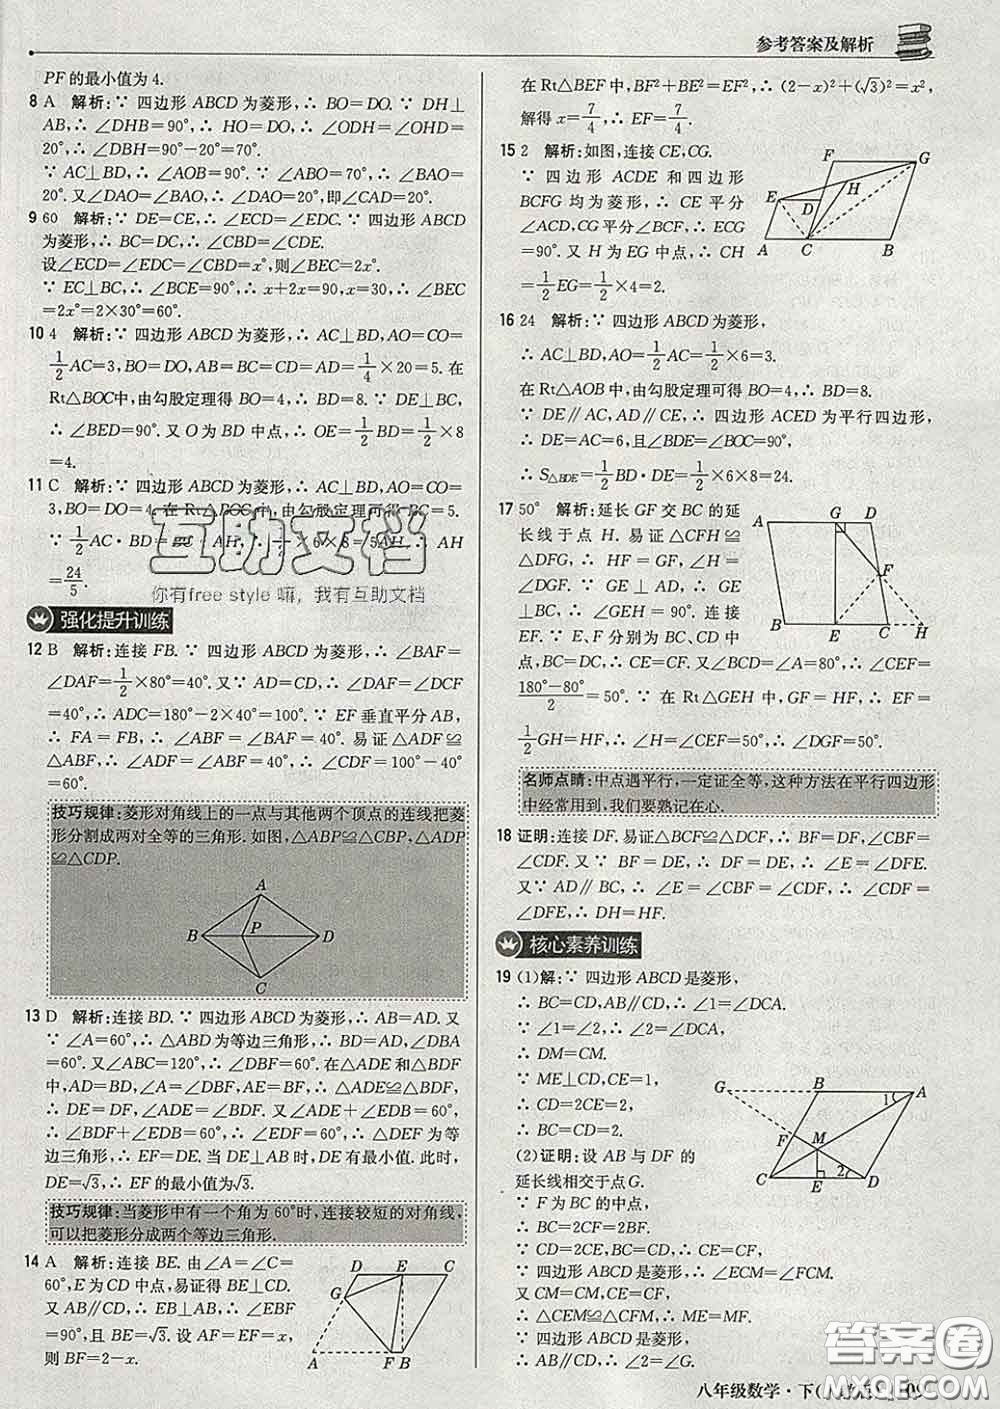 参考答案及解析
PF的最小值为4.
8 A 解析:∵ 四边形ABCD为菱形,∴ BO=DO.∵ DH⊥
AB,∴ ∠DHB=90°,∴ HO=DO,∴ ∠ODH=∠OHD=
20°,∴ ∠DBH=90°-20°=70°.
∵ AC⊥BD,∴ ∠AOB=90°.∵ ∠ABO=70°,∴ ∠BAO=
20°.又∠DAO=∠BAO,∴ ∠DAO=20°,即∠CAD=20°.
9 60 解析:∵ DE=CE,∴ ∠ECD=∠EDC.∵ 四边形ABCD
为菱形,∴ BC=DC,∴ ∠CBD=∠CDE.
设∠ECD=∠EDC=∠CBD=x°,则∠BEC=2x°.
∵ EC⊥BC,∴ ∠BCE=90°,∴ x+2x=90,x=30,∴ ∠BEC
=2x°=2×30°=60°.
10 4 解析:∵ 四边形ABCD为菱形,∴ AC⊥BD,AO=CO=
1/2 AC=3,BO=DO,AB=BC=CD=AD=1/4×20=5.在
Rt△BOC中,由勾股定理得BO=4,∴ BD=8.∵ DE⊥BC,
∴ ∠BED=90°.又O为BD中点,∴ OE=1/2 BD=1/2×8
=4.
11 C 解析:∵ 四边形ABCD为菱形,∴ AC⊥BD,AO=CO=
3,BO=DO=4.在Rt△BOC中,由勾股定理可得BC=5.
∵ 1/2 AC·BD= AH
=24/5.
互助文档
你有free style嘛,我有互助文档
强化提升训练
12 B 解析:连接FB.∵ 四边形ABCD为菱形,∴ ∠BAF=
∠DAF=1/2×80°=40°.又∵ AD=CD,∴ ∠DAF=∠DCF
=40°,∴ ∠ADC=180°-2×40°=100°.∵ EF垂直平分AB,
∴ FA=FB,∴ ∠ABF=∠BAF=40°.易证△ADF≌
△ABF,∴ ∠ADF=∠ABF=40°,∴ ∠CDF=100°-40°
=60°.
技巧规律:菱形对角线上的一点与其他两个顶点的连线把菱
形分割成两对全等的三角形.如图,△ABP≌△CBP,△ADP
≌△CDP.
A
B P D
C
13 D 解析:连接BD.∵ 四边形ABCD为菱形,∴ AB=AD.又
∵ ∠A=60°,∴ △ABD为等边三角形,∴ BD=AD,∠DBA
=60°.又∠ABC=120°,∴ ∠DBF=60°.在△ADE和△BDF
中,AD=BD,∠A=∠DBF,AE=BF,∴ △ADE≌△BDF,
∴ DE=DF,∠ADE=∠BDF.又∠ADE+∠EDB=60°,∴
∠BDF+∠EDB=60°,∴ ∠EDF=60°,∴ △DEF为等
边三角形,∴ EF=DE.当DE⊥AB时,DE有最小值.此时,
DE=√3,∴ EF的最小值为√3.
技巧规律:当菱形中有一个角为60°时,连接较短的对角线,
可以把菱形分成两个等边三角形.
14 A 解析:连接BE.由∠A=∠C=
60°,E为CD中点,易证得BE⊥CD.
又AB∥CD,∴ EB⊥AB,∴ ∠EBF
=90°,且BE=√3.设AF=EF=x,
则BF=2-x.
D E C
G
A F B
在Rt△BEF中,BF²+BE²=EF²,∴ (2-x)²+(√3)²=x²,
解得x=7/4,∴ EF=7/4.
15 2 解析:如图,连接CE,CG.
∵ 四边形ACDE和四边形
BCFG均为菱形,∴ CE平分
∠ACD,CG平分∠BCF,∴ ∠ECG
=90°.又H为EG中点,∴ CH
=1/2 EG=1/2×4=2.
F G
E H
D
A C B
16 24 解析:∵ 四边形ABCD为菱形,
∴ AC⊥BD,AO=1/2 AC=1/2×6=3.
在Rt△AOB中,由勾股定理可得BO=4,∴ BD=8.
∵ DE∥AC,AD∥CE,∴ 四边形ACED为平行四边形,
∴ DE=AC=6,且∠BDE=∠BOC=90°,
∴ S△BDE=1/2 BD·DE=1/2×6×8=24.
17 50° 解析:延长GF交BC的延
长线于点H.易证△CFH≌
△DFG,∴ HF=GF,∠H=
∠DGF.∵ GE⊥BC,
∴ ∠GEH=90°.连接
EF.∵ E、F分别为BC、CD中
点,BC=DC,∴ CE=CF.又∠BCD=∠A=80°,∴ ∠CEF=
(180°-80°)/2=50°.∵ 在Rt△GEH中,GF=HF,∴ EF=
1/2 GH=HF,∴ ∠H=∠CEF=50°,∴ ∠DGF=50°.
A G D
F
B E C H
名师点睛:中点遇平行,一定证全等,这种方法在平行四边形
中经常用到,我们要熟记在心.
18 证明:连接DF.易证△BCF≌△DCF,∴ BF=DF,∠CBF=
∠CDF.又∵ BF=DE,∴ DF=DE,∴ ∠E=∠DFE.
又∵ AD∥BC,∴ ∠E=∠CBF=∠CDF,∴ ∠CDF=
∠DFE,∴ DH=HF.
核心素养训练
19 (1)解:∵ 四边形ABCD是菱形,
∴ BC=CD,AB∥CD,∴ ∠1=∠DCA.
∵ ∠1=∠2,∴ ∠2=∠DCA,
∴ DM=CM.
∵ ME⊥CD,CE=1,
∴ CD=2CE=2,
∴ BC=CD=2.
(2)证明:设AB与DF的
延长线相交于点G.
∵ F为BC的中点,
∴ BC=2CF=2BF.
∵ CD=2CE,BC=CD,∴ CE=CF.
∵ 四边形ABCD是菱形,∴ ∠ECM=∠FCM.
又CM=CM,CE=CF,
∴ △CEM≌△CFM,∴ ME=MF.
∵ 四边形ABCD是菱形,
∴ AB∥CD,∴
G B A
1
F M
2
C E D
八年级数学·下
答案圈
MXQE.COM